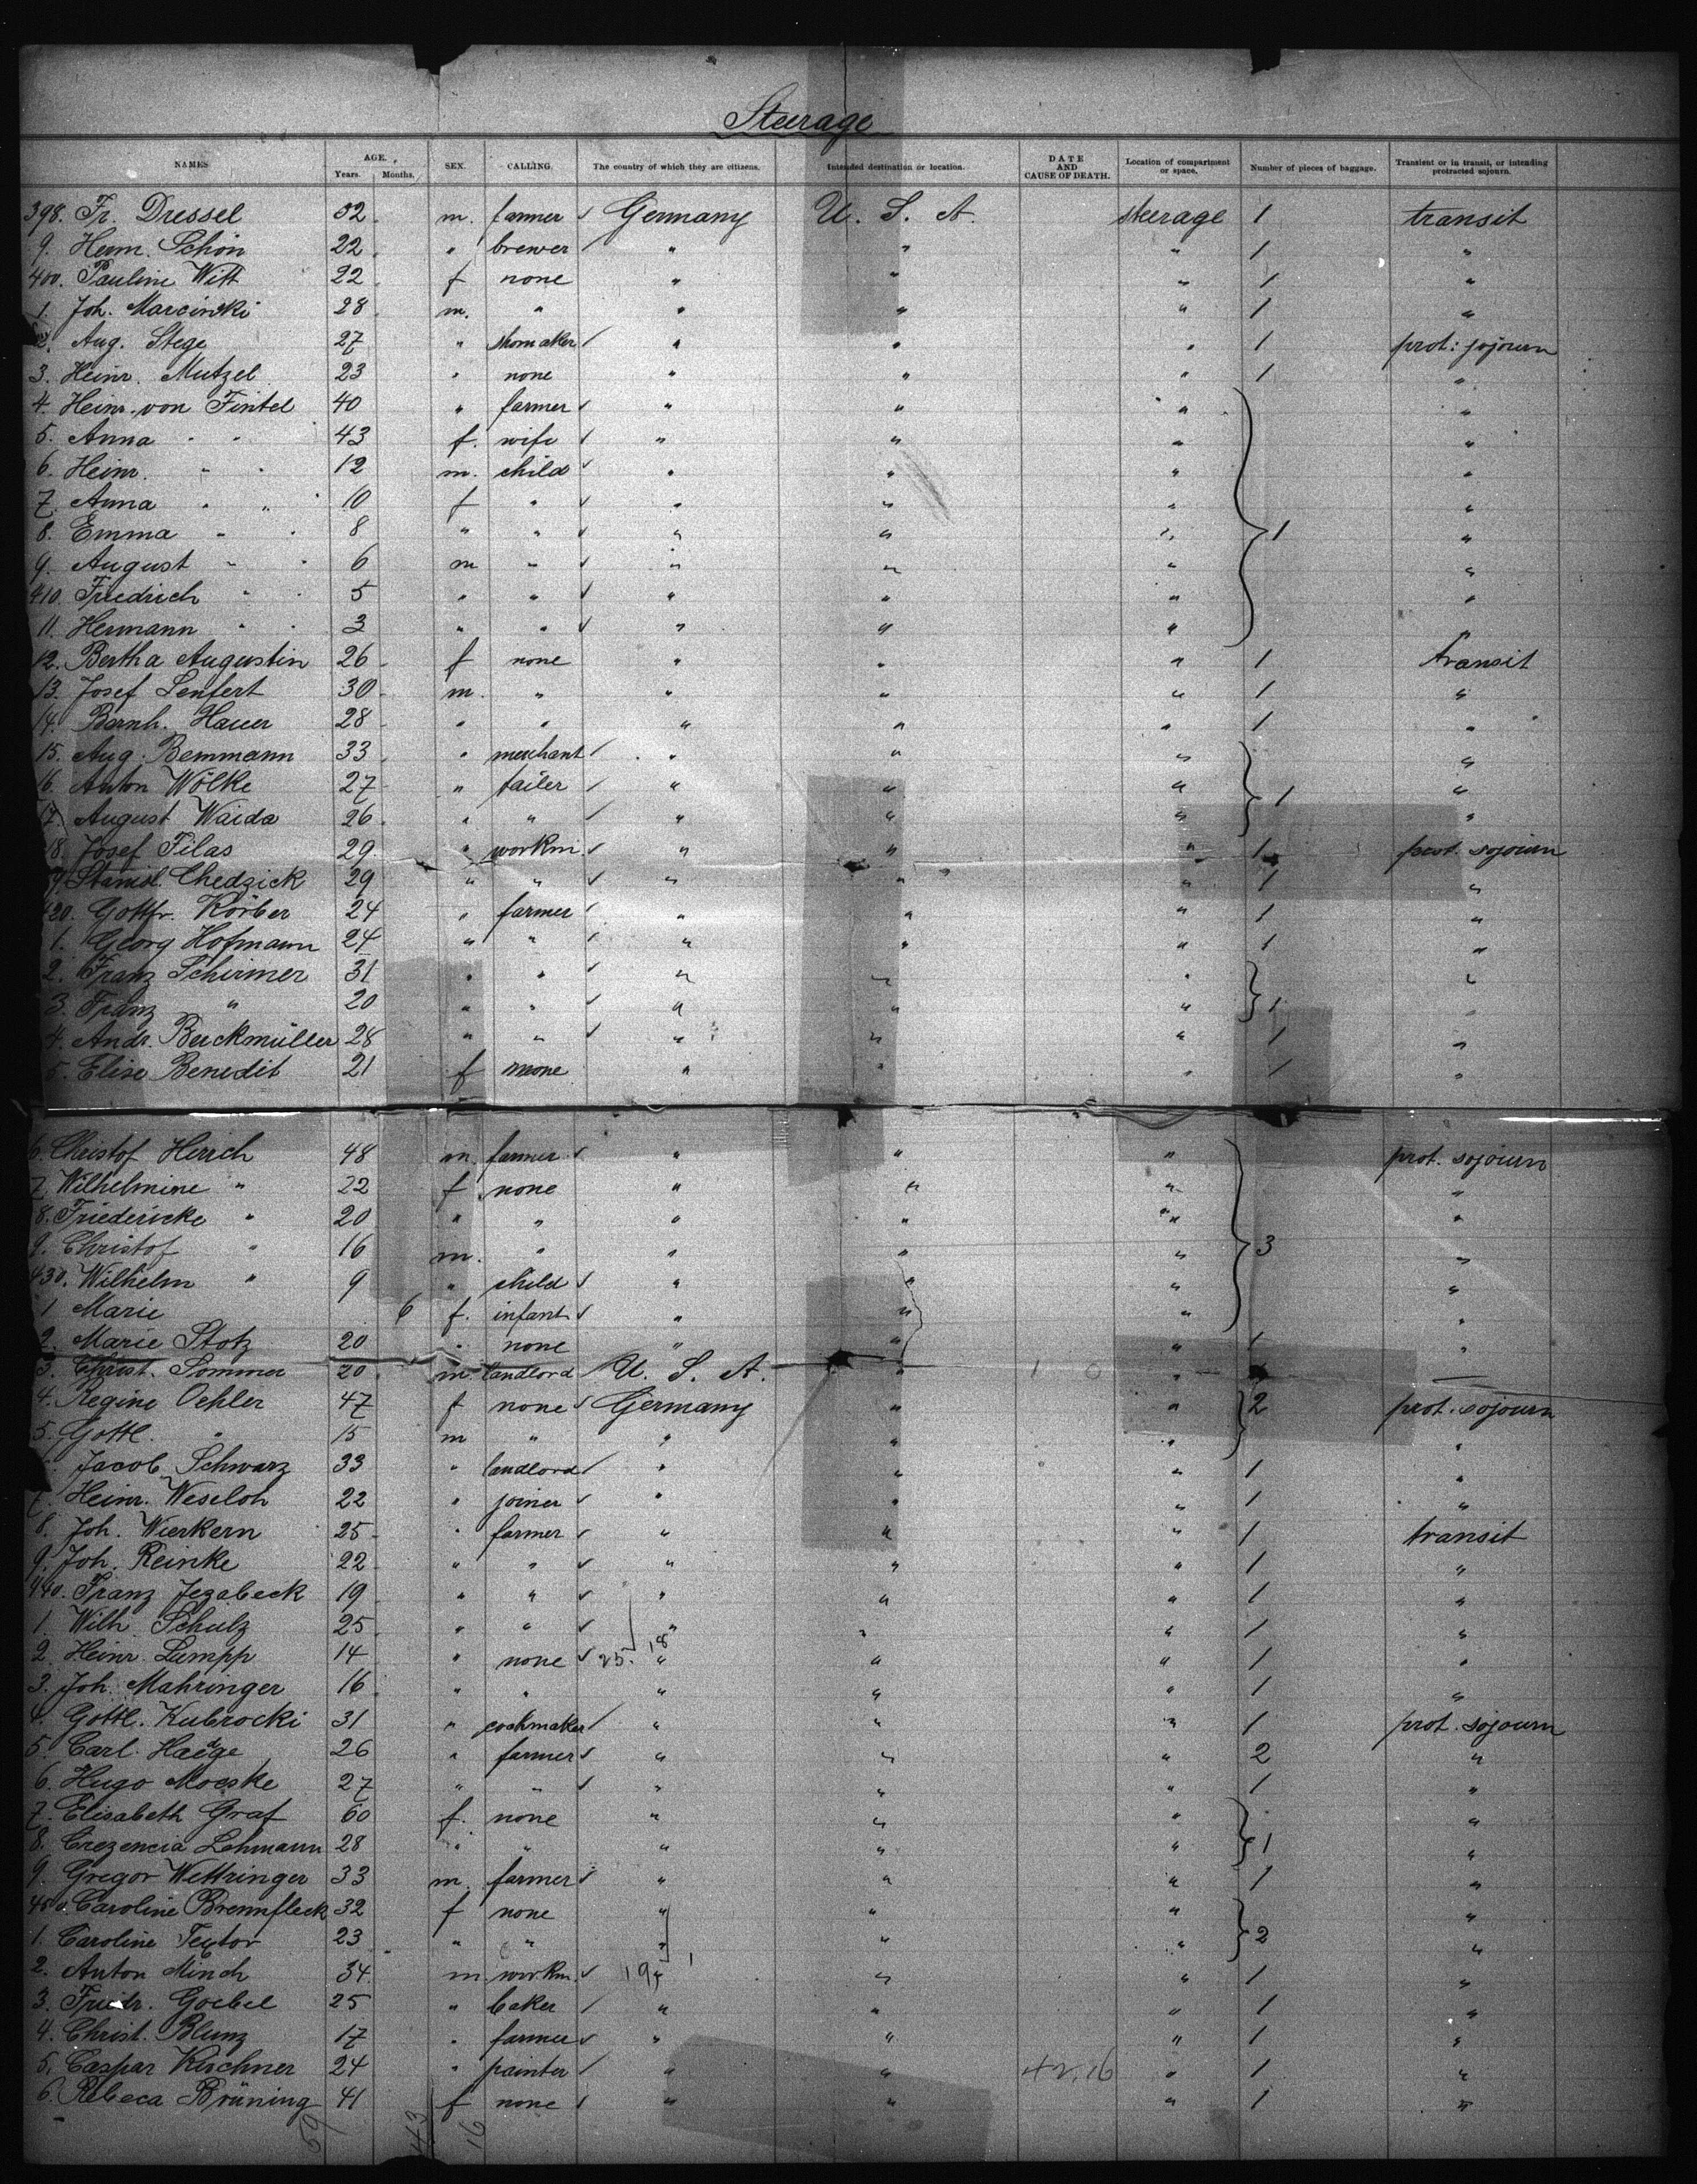 Steerage
NAMES AGE. Years. Months. SEX. CALLING. The country of which they are citizens. Intended destination or location. DATE AND CAUSE OF DEATH. Location of compartment or space. Number of pieces of baggage. Transient or in transit, or intending protracted sojourn.
398. Fr. Dressel 32 m. farmer ✓ Germany U. S. A. steerage 1 transit
9. Herm. Schön 22 " brewer / " " " 1 "
400. Pauline Witt 22 f none " " " 1 "
1. Joh. Marcinski 28 m. " " " " 1 "
2. Aug. Stege 27 " shomaker / " " " 1 prot: sojourn
3. Heinr. Mutzel 23 " none " " " 1 "
4. Heinr. von Fintel 40 " farmer ✓ " " " "
5. Anna " " 43 f. wife ✓ " " " "
6. Heinr. " " 12 m. child ✓ " " " "
7. Anna " " 10 f " ✓ " " " "
8. Emma " " 8 " " ✓ " " " 1 "
9. August " " 6 m " ✓ " " " "
410. Friedrich " " 5 " " ✓ " " " "
11. Hermann " " 3 " " ✓ " " " "
12. Bertha Augustin 26 f none " " " 1 transit
13. Josef Senfert 30 m. " " " " 1 "
14. Bernh. Hauer 28 " " " " " 1 "
15. Aug. Bemmann 33 " merchant / " " " "
16. Anton Wölke 27 " tailer / " " " 1 "
17. August Waida 26 " " / " " " "
18. Josef Filas 29 " workm. ✓ " " " 1 prot. sojourn
9. Stanisl. Chedzick 29 " " ✓ " " " 1 "
420. Gottfr. Körber 24 " farmer / " " " 1 "
1. Georg Hofmann 24 " " / " " " 1 "
2. Franz Schirmer 31 " " ✓ " " " "
3. Franz " 20 " " ✓ " " " 1 "
4. Andr. Beickmüller 28 " " ✓ " " " 1 "
5. Elise Benedit 21 f none " " " 1 "
6. Christof Herrch 48 m. farmer ✓ " " " prot. sojourn
7. Wilhelmine " 22 f none " " " "
8. Friedericke " 20 " " " " " "
9. Christof " 16 m. " " " " 3 "
430. Wilhelm " 9 " child ✓ " " " "
1 Marie 6 f. infant ✓ " " " "
2. Marie Stotz 20 " none " " " 1 "
3. Christ. Sommer 20 m. landlord / U. S. A. " "
4. Regine Oehler 47 f none ✓ Germany " " 2 prot. sojourn
5. Gottl. " 15 m " " " " "
Jacob Schwarz 33 " landlord / " " " 1 "
7. Heinr. Weseloh 22 " joiner ✓ " " " 1 "
8. Joh. Wierkern 25 " farmer ✓ " " " 1 transit
9. Joh. Reinke 22 " " ✓ " " " 1 "
440. Franz Jezabeck 19 " " ✓ " " " 1 "
1. Wilh. Schulz 25 " " ✓ " " " 1 "
2. Heinr. Lumpp 14 " none ✓ 25. 18 " " " 1 "
3. Joh. Mahringer 16 " " " " " 1 "
4. Gottl. Kubrocki 31 " cochmaker / " " " 1 prot. sojourn
5. Carl. Haege 26 " farmer ✓ " " " 2 "
6. Hugo Moeske 27 " " ✓ " " " 1 "
7. Elisabeth Graf 60 f. none " " " "
8. Crezencia Lehmann 28 " " " " " 1 "
9. Gregor Wettringer 33 m. farmer ✓ " " " 1 "
450. Caroline Brennfleck 32 f none " " " "
1. Caroline Textor 23 " " " " " 2 "
2. Anton Minch 34 m. workm. ✓ 19 " " " 1 "
3. Friedr. Goebel 25 " baker / " " " 1 "
4. Christ. Blunz 17 " farmer ✓ " " " 1 "
5. Caspar Kirchner 24 " painter / " " 42.16 " 1 "
6. Rebeca Brüning 41 f none / " " " 1 "
59 43 16